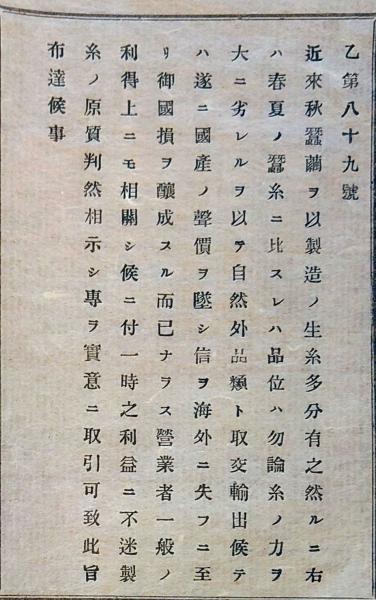 乙第八十九號
近來秋蠶繭ヲ以製造ノ生糸多分有之然ルニ右
ハ春夏ノ蠶糸ニ比スレハ品位ハ勿論糸ノ力ヲ
大ニ劣レルヲ以テ自然外品類ト取交輸出候テ
ハ遂ニ國產ノ聲價ヲ墜シ信ヲ海外ニ失フニ至
リ御國損ヲ釀成スル而已ナラス營業者一般ノ
利得上ニモ相關シ候ニ付一時之利益ニ不迷製
糸ノ原質判然相示シ專ヲ實意ニ取引可致此旨
布達候事